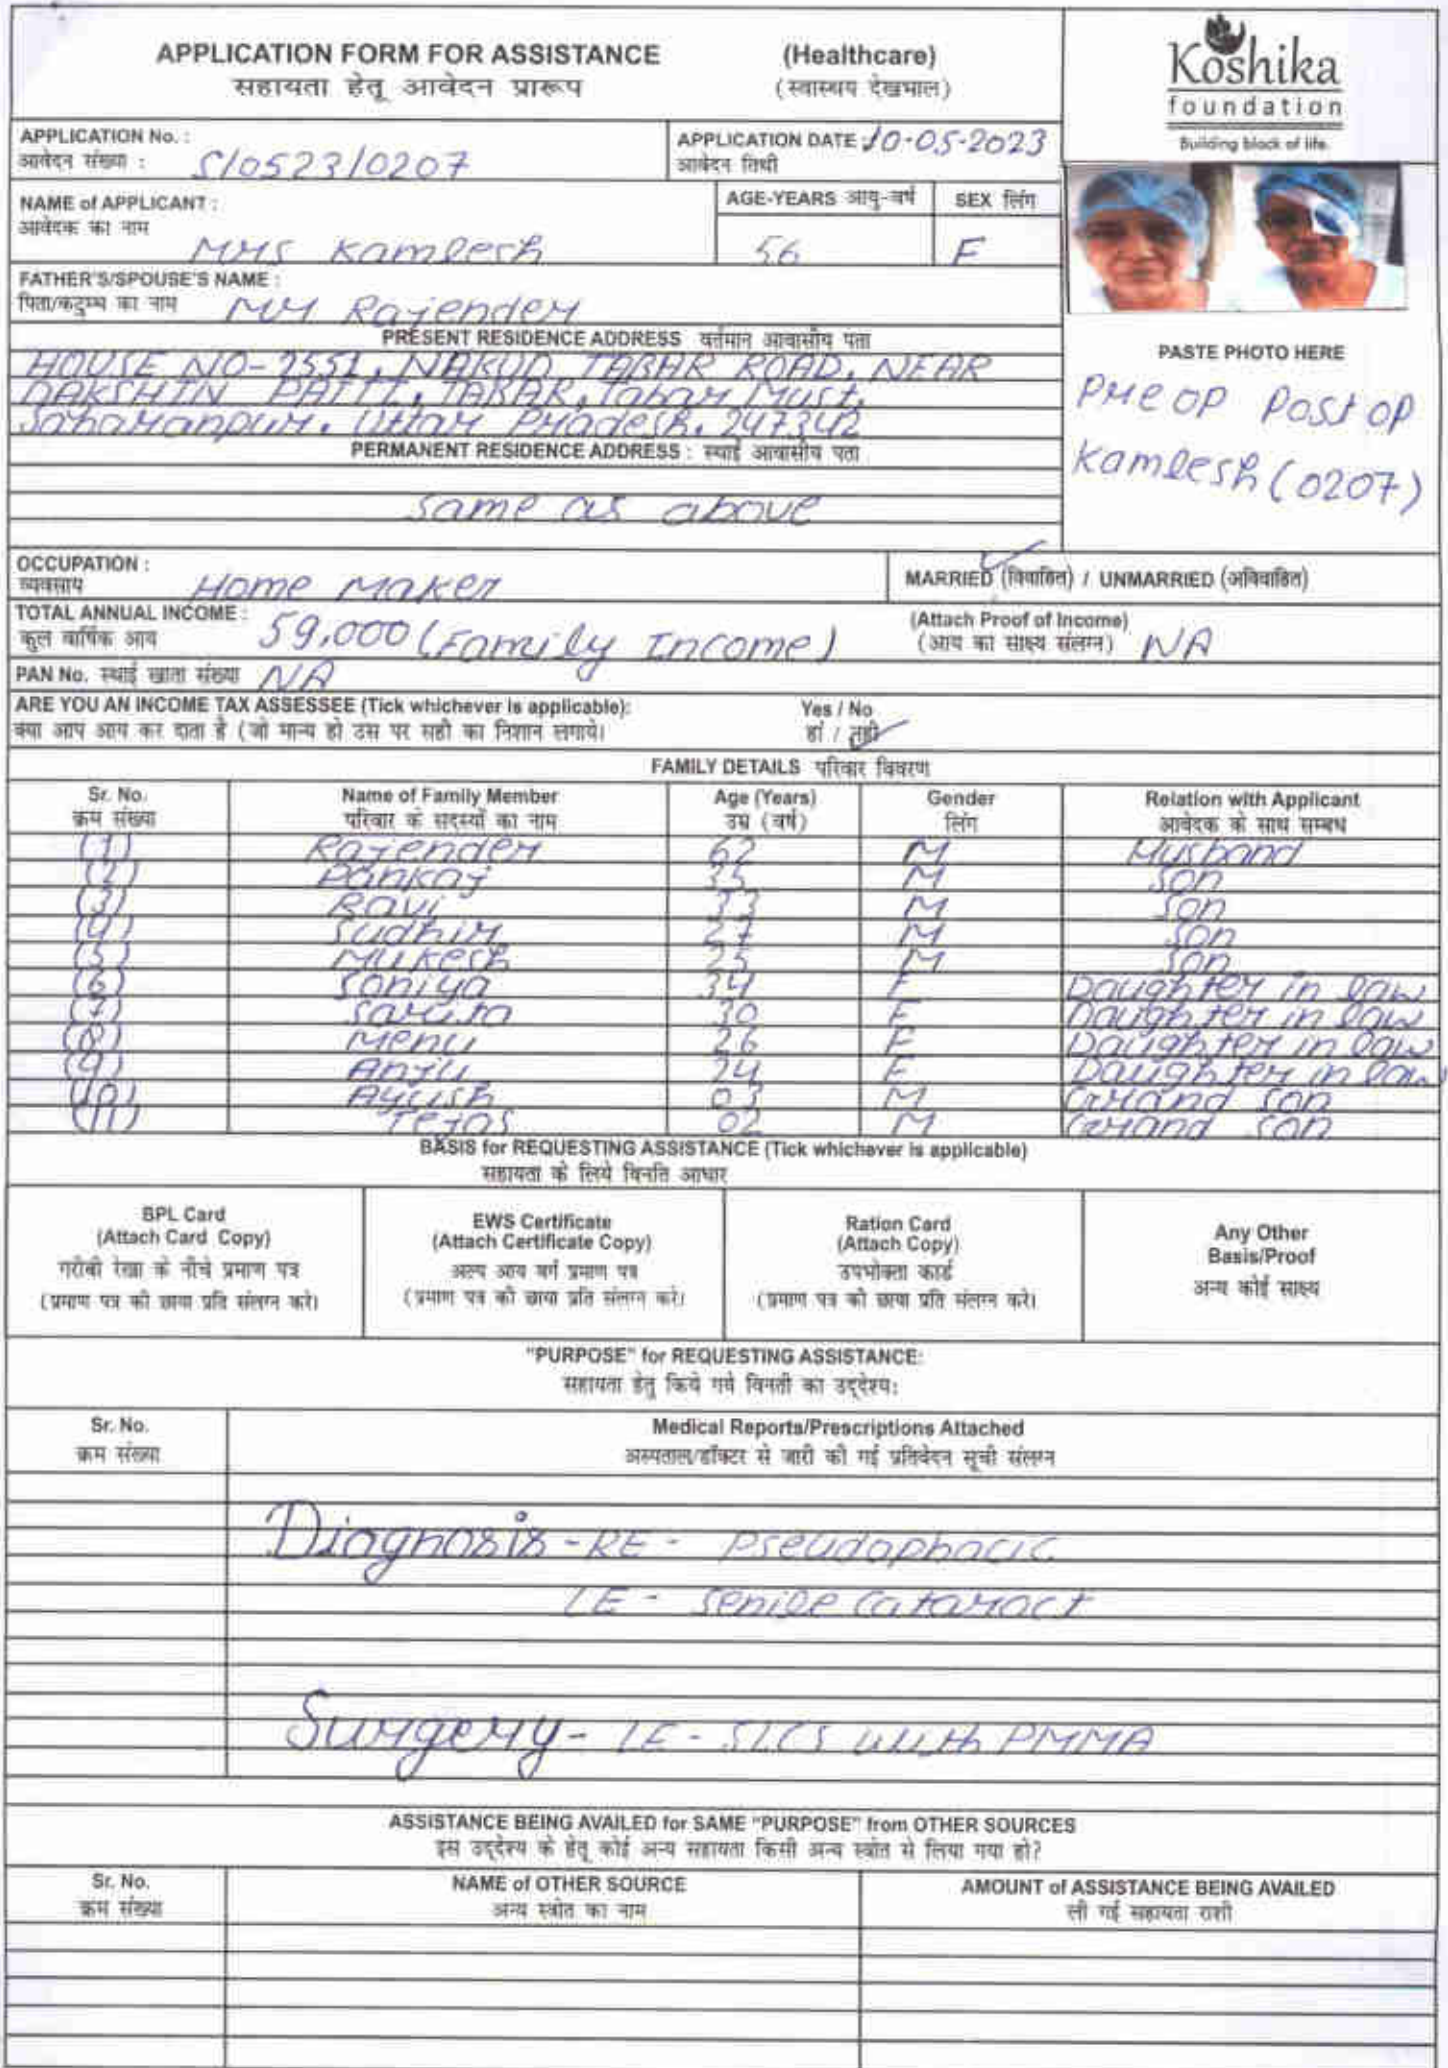 APPLICATION FORM FOR ASSISTANCE (Healthcare)
सहायता हेतू आवेदन प्रारूप (स्वास्थय देखभाल)
Koshika
foundation
Building block of life.
APPLICATION No. :
आवेदन संख्या : S/0523/0207
APPLICATION DATE : 10-05-2023
आवेदन तिथी
NAME of APPLICANT :
आवेदक का नाम Mrs Kamlesh
AGE-YEARS आयु-वर्ष
56
SEX लिंग
F
FATHER'S/SPOUSE'S NAME :
पिता/कटुम्ब का नाम Mr Rajender
PRESENT RESIDENCE ADDRESS वर्तमान आवासीय पता
HOUSE NO- NAKUD TABAR ROAD, NEAR
DAKSHIN PATTI, TABAR, Tabar Must.
Saharanpur. Uttar Pradesh. 247342
PERMANENT RESIDENCE ADDRESS : स्थाई आवासीय पता
same as above
PASTE PHOTO HERE
Pre op Post op
Kamlesh (0207)
OCCUPATION :
व्यवसाय Home Maker
MARRIED (विवाहित) / UNMARRIED (अविवाहित)
TOTAL ANNUAL INCOME :
कुल वार्षिक आय 59,000 (Family Income)
(Attach Proof of Income)
(आय का साक्ष्य संलग्न) NA
PAN No. स्थाई खाता संख्या NA
ARE YOU AN INCOME TAX ASSESSEE (Tick whichever is applicable): Yes / No
क्या आप आय कर दाता है (जो मान्य हो उस पर सही का निशान लगाये। हां / नही
FAMILY DETAILS परिवार विवरण
Sr. No. Name of Family Member Age (Years) Gender Relation with Applicant
क्रम संख्या परिवार के सदस्यों का नाम उम्र (वर्ष) लिंग आवेदक के साथ सम्बध
(1) Rajender 62 M Husband
(2) Pankaj 35 M Son
(3) Ravi 33 M Son
(4) Sudhir 27 M Son
(5) Mukesh 25 M Son
(6) Soniya 34 F Daughter in law
(7) Sarita 30 F Daughter in law
(8) Menu 26 F Daughter in law
(9) Anju 24 F Daughter in law
(10) Ayush 03 M Grand son
(11) Tejas 02 M Grand son
BASIS for REQUESTING ASSISTANCE (Tick whichever is applicable)
सहायता के लिये विनति आधार
BPL Card
(Attach Card Copy)
गरीबी रेखा के नीचे प्रमाण पत्र
(प्रमाण पत्र की छाया प्रति संलग्न करे।
EWS Certificate
(Attach Certificate Copy)
अल्प आय वर्ग प्रमाण पत्र
(प्रमाण पत्र की छाया प्रति संलग्न करे।
Ration Card
(Attach Copy)
उपभोक्ता कार्ड
(प्रमाण पत्र की छाया प्रति संलग्न करे।
Any Other
Basis/Proof
अन्य कोई साक्ष्य
"PURPOSE" for REQUESTING ASSISTANCE:
सहायता हेतु किये गये विनती का उद्देश्य:
Sr. No. Medical Reports/Prescriptions Attached
क्रम संख्या अस्पताल/डॉक्टर से जारी की गई प्रतिवेदन सूची संलग्न
Diagnosis - RE - Pseudophacic
LE - senile cataract
Surgery - LE - SICS with PMMA
ASSISTANCE BEING AVAILED for SAME "PURPOSE" from OTHER SOURCES
इस उद्देश्य के हेतू कोई अन्य सहायता किसी अन्य स्त्रोत से लिया गया हो?
Sr. No. NAME of OTHER SOURCE AMOUNT of ASSISTANCE BEING AVAILED
क्रम संख्या अन्य स्त्रोत का नाम ली गई सहायता राशी